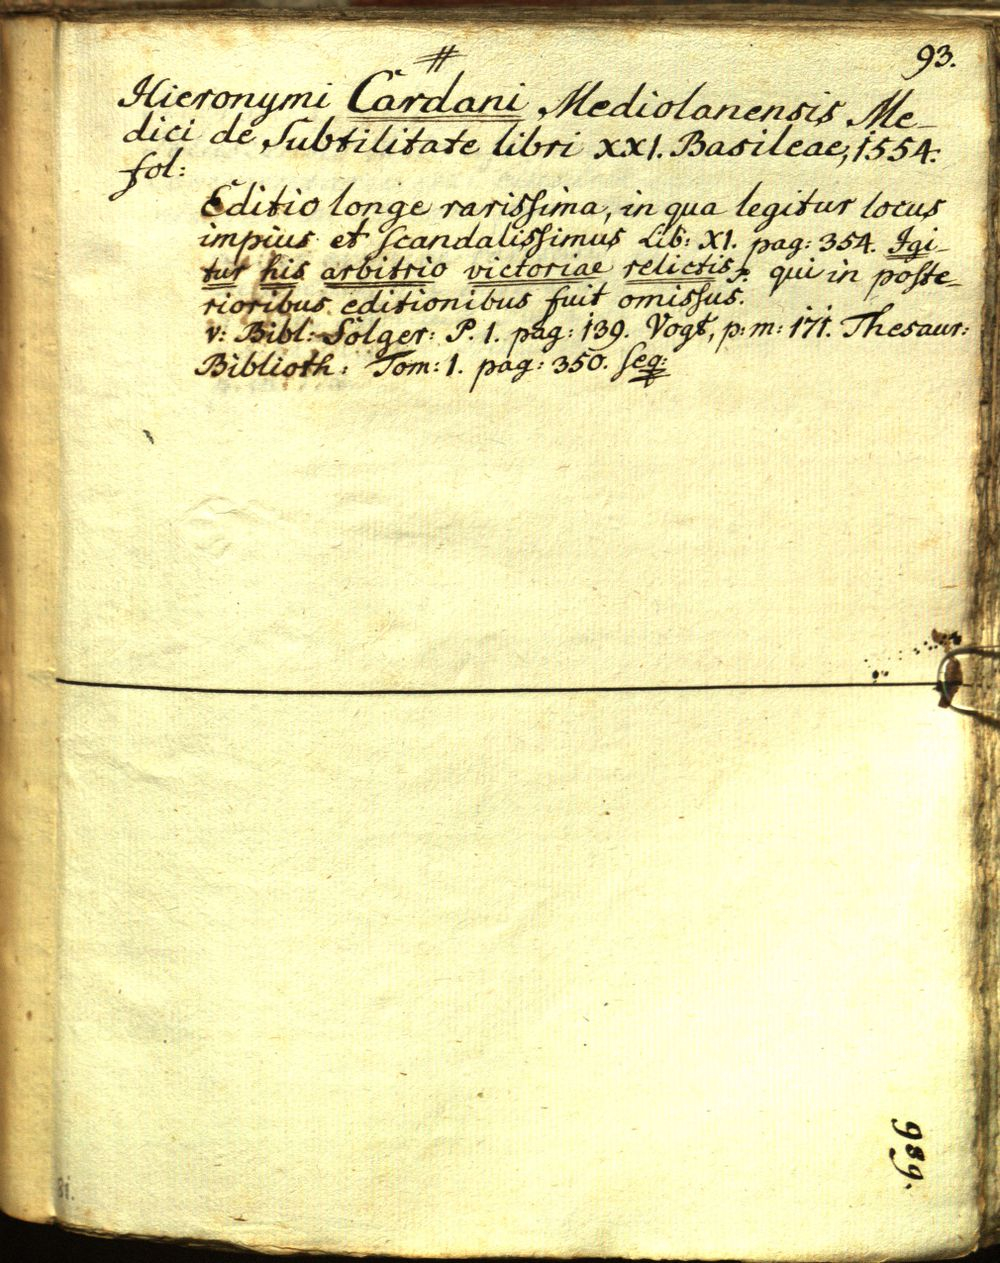 #
93.
Hieronymi Cardani Mediolanensis Me-
dici de Subtilitate libri XXI. Basileae, 1554.
fol:
Editio longe rarissima, in qua legitur locus
impius et scandalissimus Lib: XI. pag: 354. Igi-
tur his arbitrio victoriae relictis: qui in poste-
rioribus editionibus fuit omissus.
v: Bibl: Solger: P. 1. pag: 139. Vogt, p: m: 171. Thesaur:
Biblioth: Tom: 1. pag: 350. seq:
989.
81.